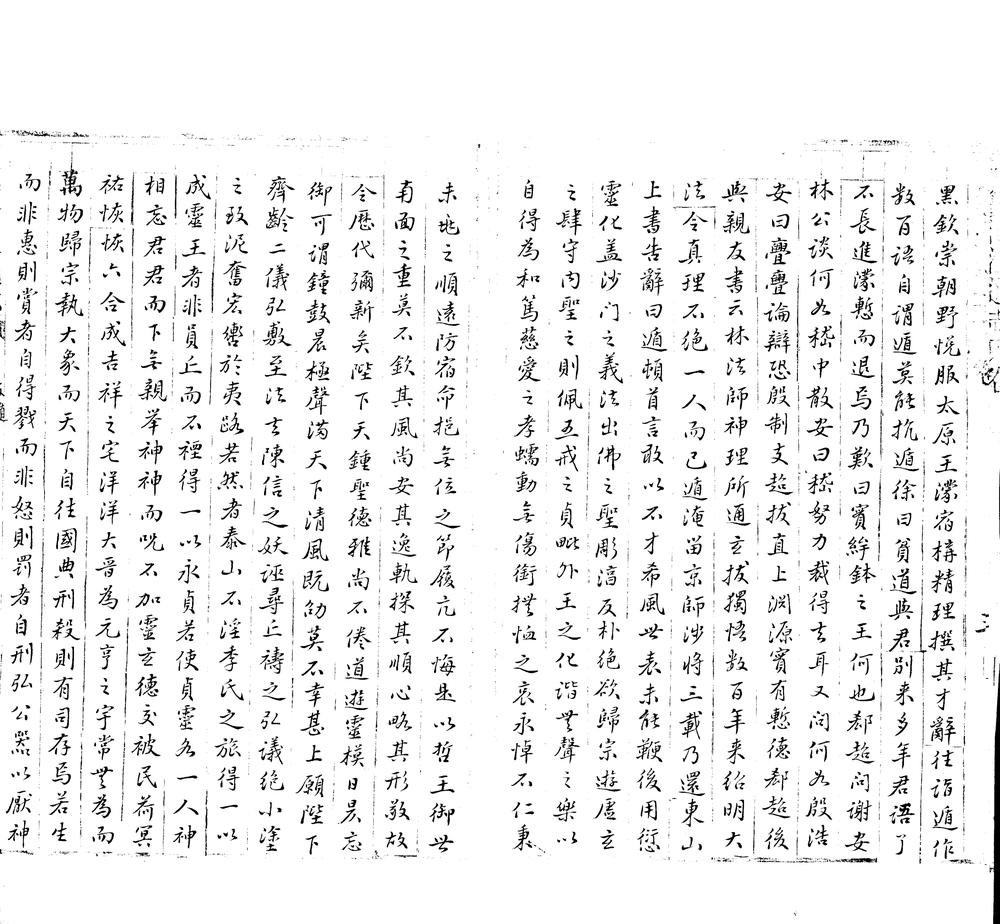 黑欽崇朝野悅服太原王濛宿構精理撰其才辭往詣遁作
数百語自謂遁莫能抗遁徐曰貧道與君別来多年君語了
不長進濛慙而退焉乃歎曰實緇鉢之王何也郄超问謝安
林公谈何如嵇中散安曰嵇努力裁得去耳又问何如殷浩
安曰亹亹論辯恐殷制支超拔直上渊源實有慙德郄超後
與親友書云林法師神理所通玄拔獨悟数百年来紹明大
法令真理不绝一人而已遁淹留京師涉将三載乃還東山
上書告辭曰遁頓首言敢以不才希風世表未能鞭後用愆
靈化盖沙门之義法出佛之聖彫淳反朴绝欲歸宗遊虚玄
之肆守内聖之则佩五戒之貞毗外王之化谐無聲之樂以
自得為和篤慈愛之孝蠕動無傷銜撫恤之哀永悼不仁秉
未兆之順遠防宿命挹無位之節履亢不悔是以哲王御世
南面之重莫不欽其風尚安其逸軌探其順心略其形敬故
令歷代彌新矣陛下天鍾聖德雅尚不倦道遊靈模日昃忘
御可谓鐘鼓晨極聲满天下清風既劭莫不幸甚上願陛下
齊齡二儀弘敷至法去陳信之妖诬尋丘禱之弘議绝小塗
之致泥奮宏轡於夷路若然者泰山不淫季氏之旅得一以
成靈王者非員丘而不禋得一以永貞若使貞靈各一人神
相忘君君而下無親举神神而呪不加靈玄德交被民荷冥
祐恢恢六合成吉祥之宅洋洋大晋為元亨之宇常無為而
萬物歸宗執大象而天下自往國典刑殺則有司存焉若生
而非惠則賞者自得戮而非怒則罰者自刑弘公器以厭神